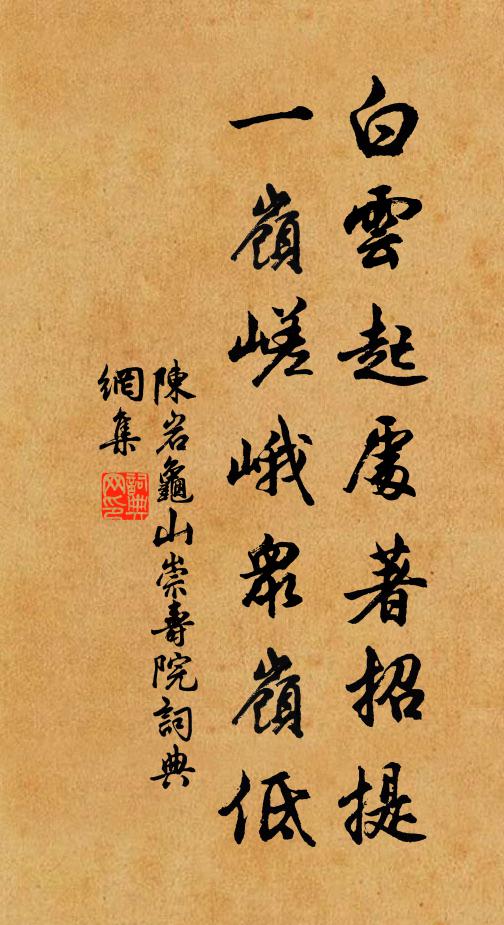 白雲起處著招提
一嶺嵯峨眾嶺低
陳岩龜山崇壽院詞典
網集
詞典
网印